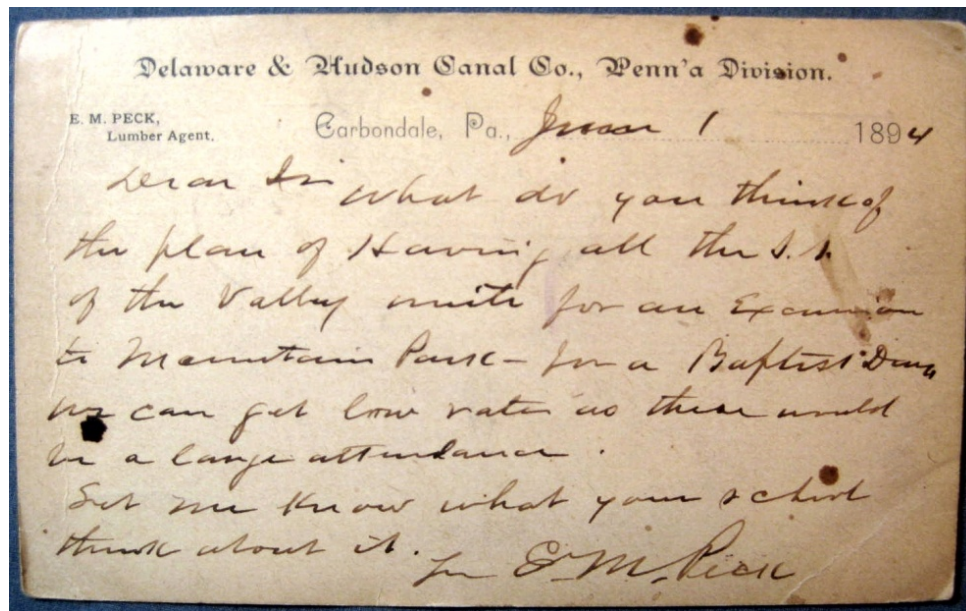 Delaware & Hudson Canal Co., Penn'a Division.
E. M. PECK,
Lumber Agent.
Carbondale, Pa., 1 1894
Dear Sir What do you think of
the plan of Having all the S.S.
of the Valley unite for an Excursion
to Mountain Park - for a Baptist Day
we can get low rates as there would
be a large attendance.
Let me Know what your school
think about it.
E. M. Peck